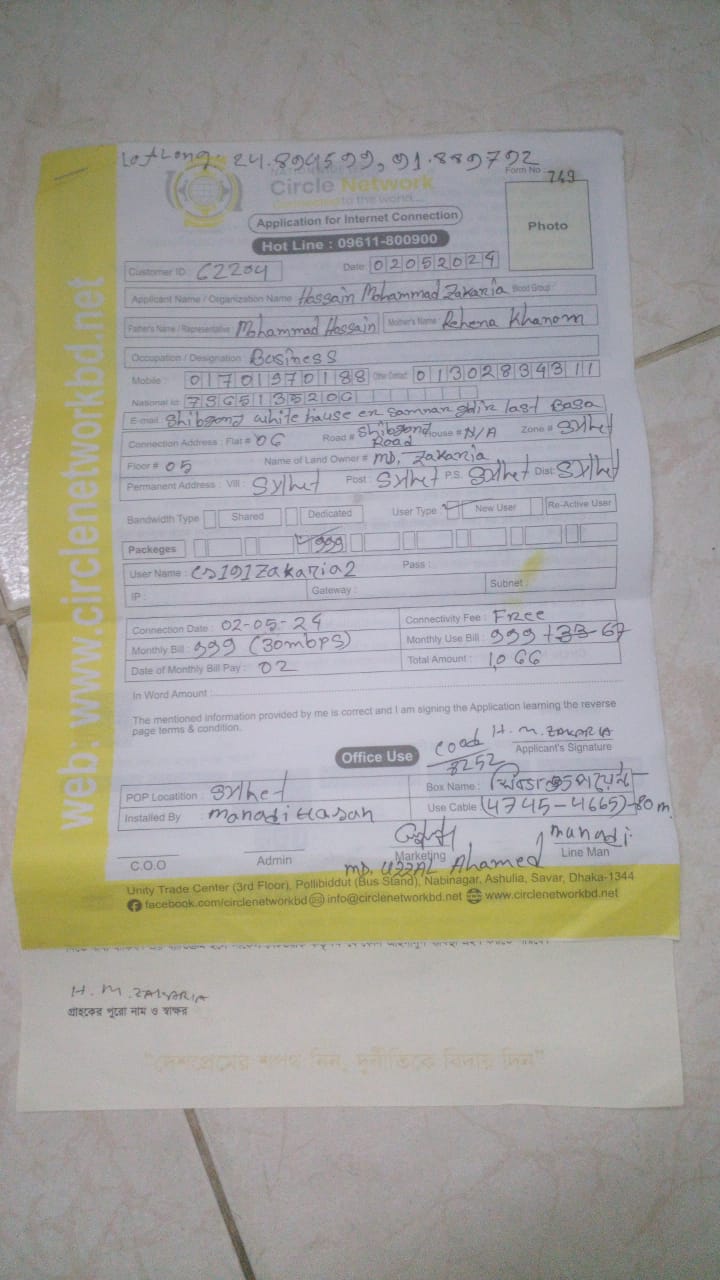 Lat Long: 24.894599, 91.889792
Circle Network
Connecting to the world...
Form No : 749
Application for Internet Connection
Photo
Hot Line : 09611-800900
Customer ID : 62204
Date: 02052024
Applicant Name / Organization Name Hossain Mohammad Zakaria Blood Group :
Father's Name / Representative Mohammad Hossain Mother's Name : Rehena Khanom
Occupation / Designation : Business
Mobile : 01701970188 Other Contact : 01302834311
National Id: 7365135206
E-mail : Shibgong white hause er samnar goli last Basa
Connection Address : Flat # 06 Road # Shibgong Road House # N/A Zone # Sylhet
Floor # 05 Name of Land Owner # MD. Zakaria
Permanent Address : Vill : Sylhet Post : Sylhet P.S. Sylhet Dist: Sylhet
Bandwidth Type Shared Dedicated User Type : New User Re-Active User
Packeges 999
User Name : cs191zakaria2 Pass :
IP : Gateway : Subnet :
Connection Date : 02-05-24 Connectivity Fee : Free
Monthly Bill : 999 (30mbps) Monthly Use Bill : 999 + 33- 67
Date of Monthly Bill Pay : 02 Total Amount : 1,066
In Word Amount :
The mentioned information provided by me is correct and I am signing the Application learning the reverse
page terms & condition.
H. M. ZAKARIA
Applicant's Signature
Office Use
coad
8252
POP Locatition : Sylhet Box Name :
Installed By Manadi Hasan Use Cable (4745-4665)-80m.
C.O.O Admin Marketing Line Man
MD. UZZAL Ahamed manadi
Unity Trade Center (3rd Floor), Pollibiddut (Bus Stand), Nabinagar, Ashulia, Savar, Dhaka-1344
facebook.com/circlenetworkbd info@circlenetworkbd.net www.circlenetworkbd.net
web: www.circlenetworkbd.net
H. M. ZAKARIA
গ্রাহকের পুরো নাম ও স্বাক্ষর
"দেশপ্রেমের শপথ নিন, দুর্নীতিকে বিদায় দিন"